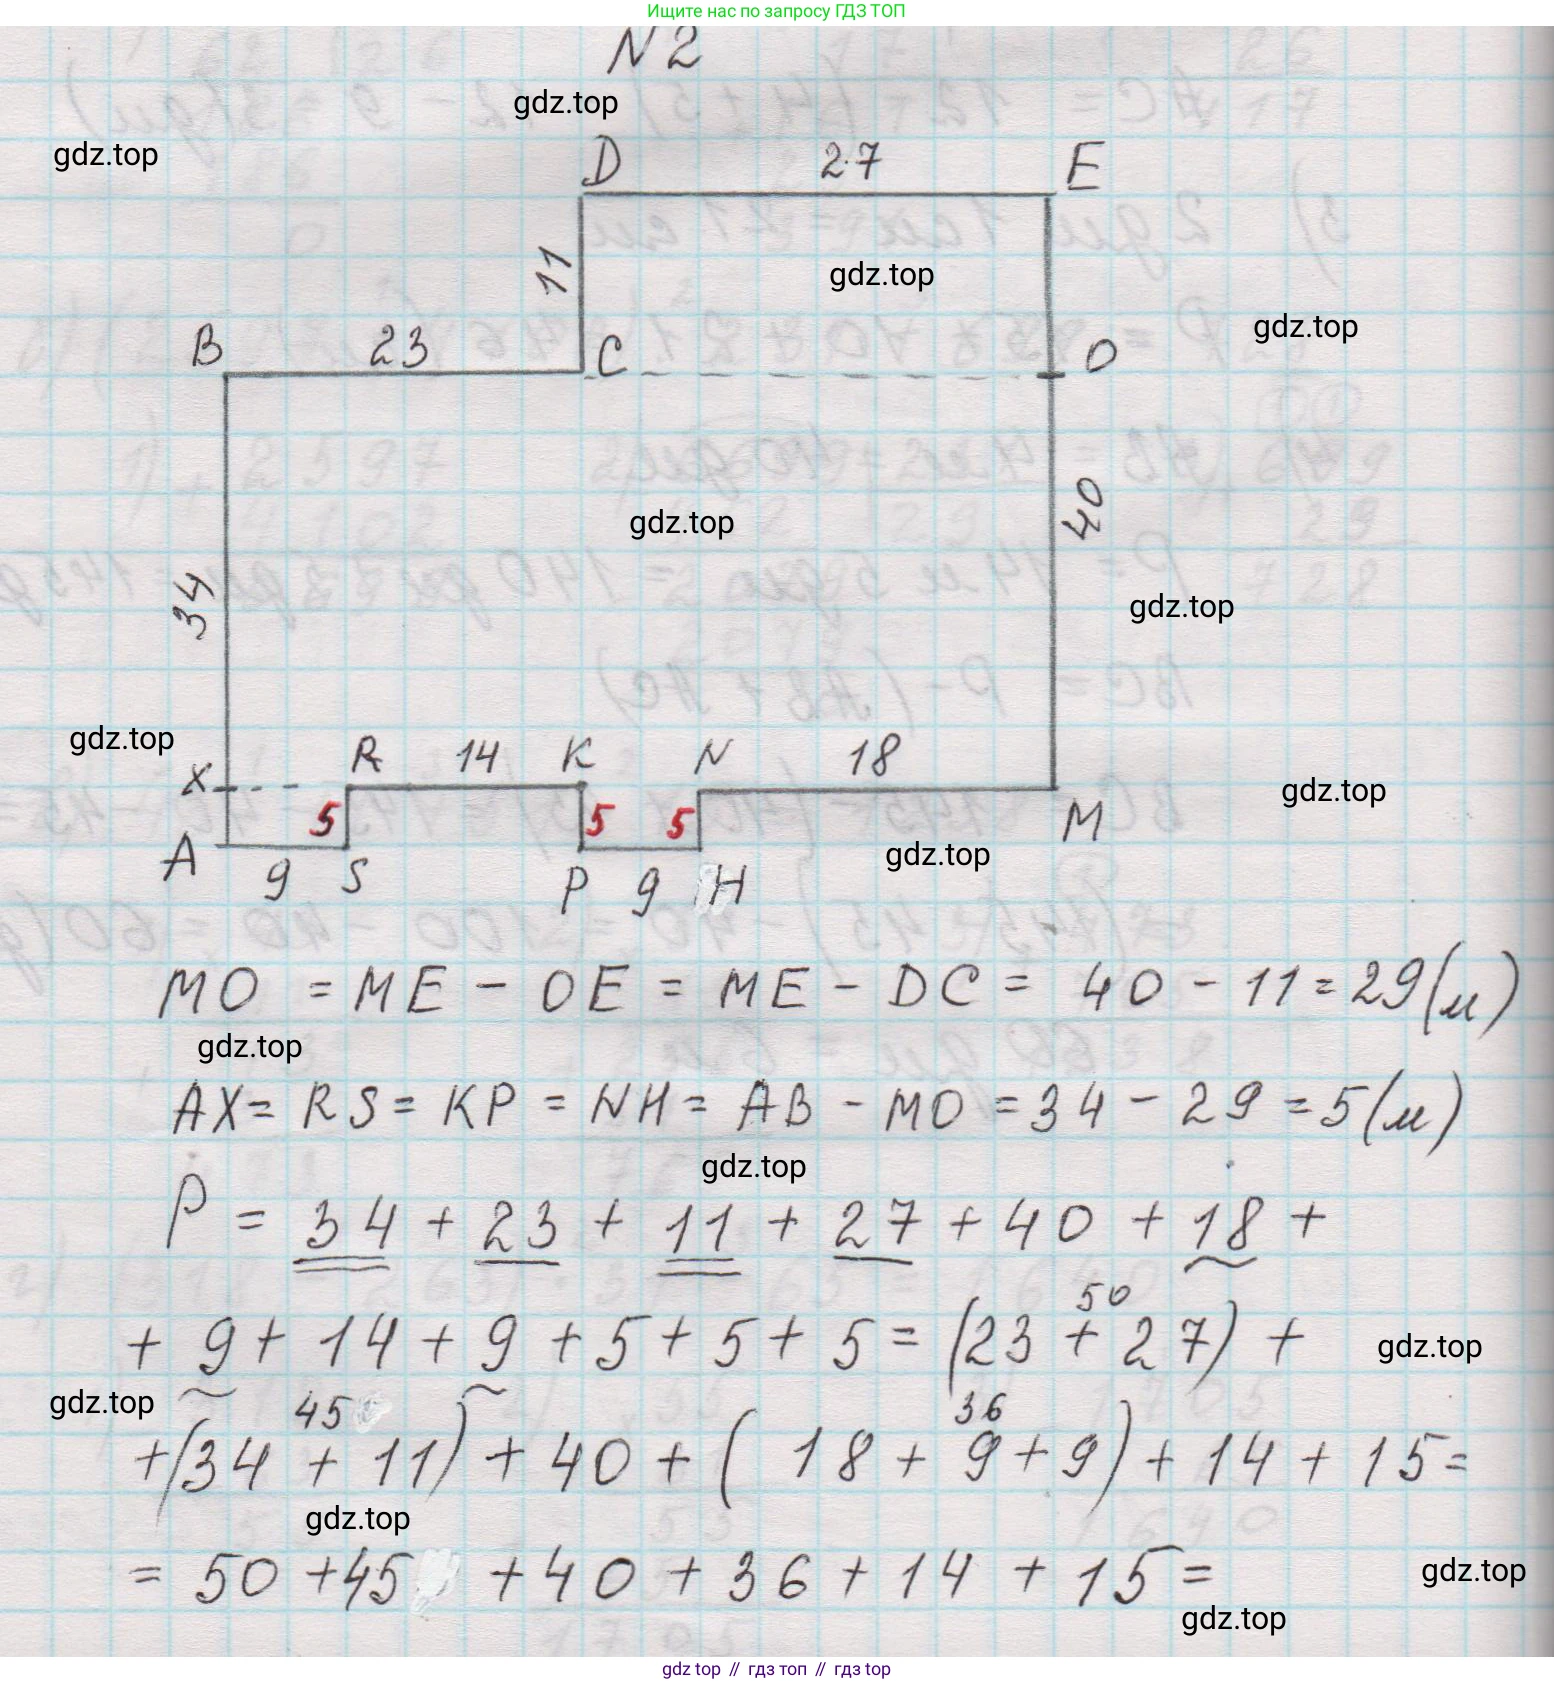 Ищите нас по запросу ГДЗ ТОП
N 2
gdz.top
gdz.top
D 27 E
11
gdz.top
B 23 C O
gdz.top
gdz.top
40
34
gdz.top
gdz.top
X R 14 K N 18
gdz.top
5 5 5
A 9 S P 9 H M
gdz.top
MO = ME - OE = ME - DC = 40 - 11 = 29 (м)
gdz.top
AX = RS = KP = NH = AB - MO = 34 - 29 = 5 (м)
gdz.top
P = 34 + 23 + 11 + 27 + 40 + 18 +
50
+ 9 + 14 + 9 + 5 + 5 + 5 = (23 + 27) +
gdz.top
gdz.top
45 36
+ (34 + 11) + 40 + (18 + 9 + 9) + 14 + 15 =
gdz.top
= 50 + 45 + 40 + 36 + 14 + 15 =
gdz.top
gdz.top
gdz top // гдз топ // гдз top